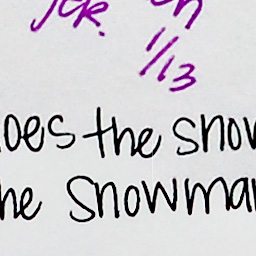 1/13
oes the snow
he snowman